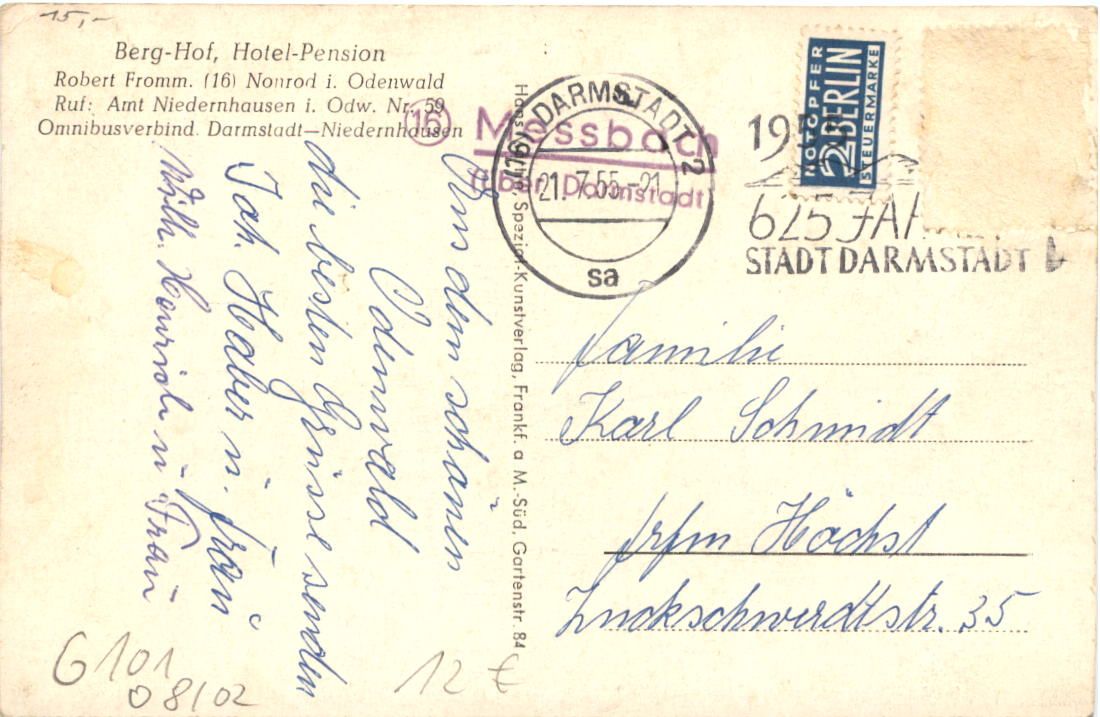 15,-
Berg-Hof, Hotel-Pension
Robert Fromm. (16) Nonrod i. Odenwald
Ruf: Amt Niedernhausen i. Odw. Nr. 59
Omnibusverbind. Darmstadt—Niedernhausen
(16) Messbach
über Darmstadt
(16) DARMSTADT 2
21.-7.55-21
sa
NOTOPFER
2 BERLIN
STEUERMARKE
195
625 JAH
STADT DARMSTADT
Aus dem schönen
Odenwald
die besten Grüsse senden
Joh. Heber u. Frau
Wilh. Henrich u. Frau
Spezial-Kunstverlag, Frankf. a M.-Süd, Gartenstr. 84
Familie
Karl Schmidt
Ffm Höchst
Zuckschwerdtstr. 35
G 101
08/02
12 €